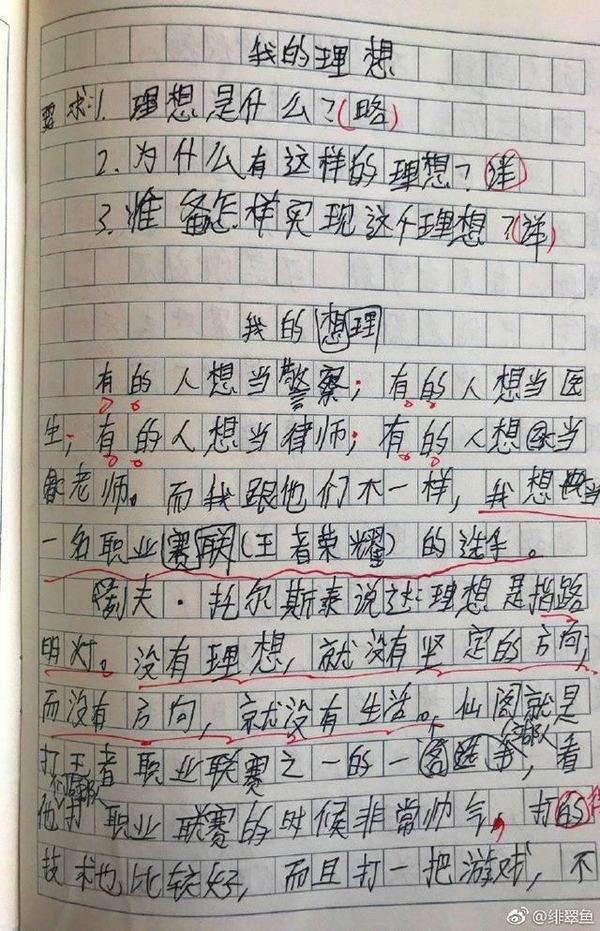 我的理想
要求:1. 理想是什么?(略)
2. 为什么有这样的理想?(详)
3. 准备怎样实现这个理想?(详)
我的想理
有的人想当警察;有的人想当医
生;有的人想当律师;有的人想当
老师。而我跟他们不一样,我想当
一名职业赛联(王者荣耀)的选手。
列夫·托尔斯泰说过:理想是指路
明灯。没有理想,就没有坚定的方向;
而没有方向,就没有生活。仙阁就是
打王者职业联赛之一的一名选手,看
他打职业联赛的时候非常帅气,打的
技术也比较好,而且打一把游戏,不
@绯翠鱼